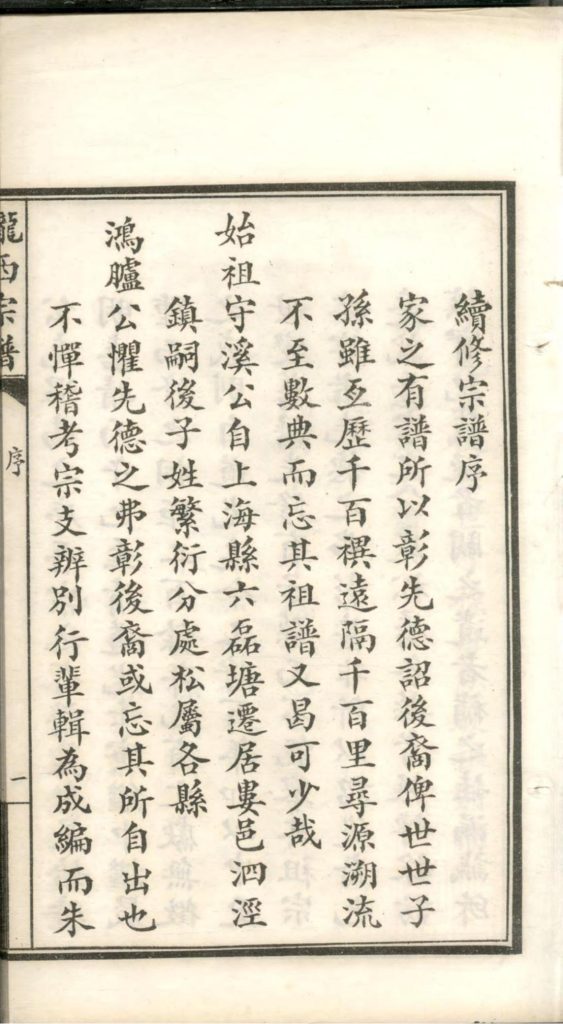 續修宗譜序
家之有譜所以彰先德詔後裔俾世世子
孫雖亙歷千百禩遠隔千百里尋源溯流
不至數典而忘其祖譜又曷可少哉
始祖守溪公自上海縣六磊塘遷居婁邑泗涇
鎮嗣後子姓繁衍分處松屬各縣
鴻臚公懼先德之弗彰後裔或忘其所自出也
不憚稽考宗支辨別行輩輯為成編而朱
隴西宗譜
序
一